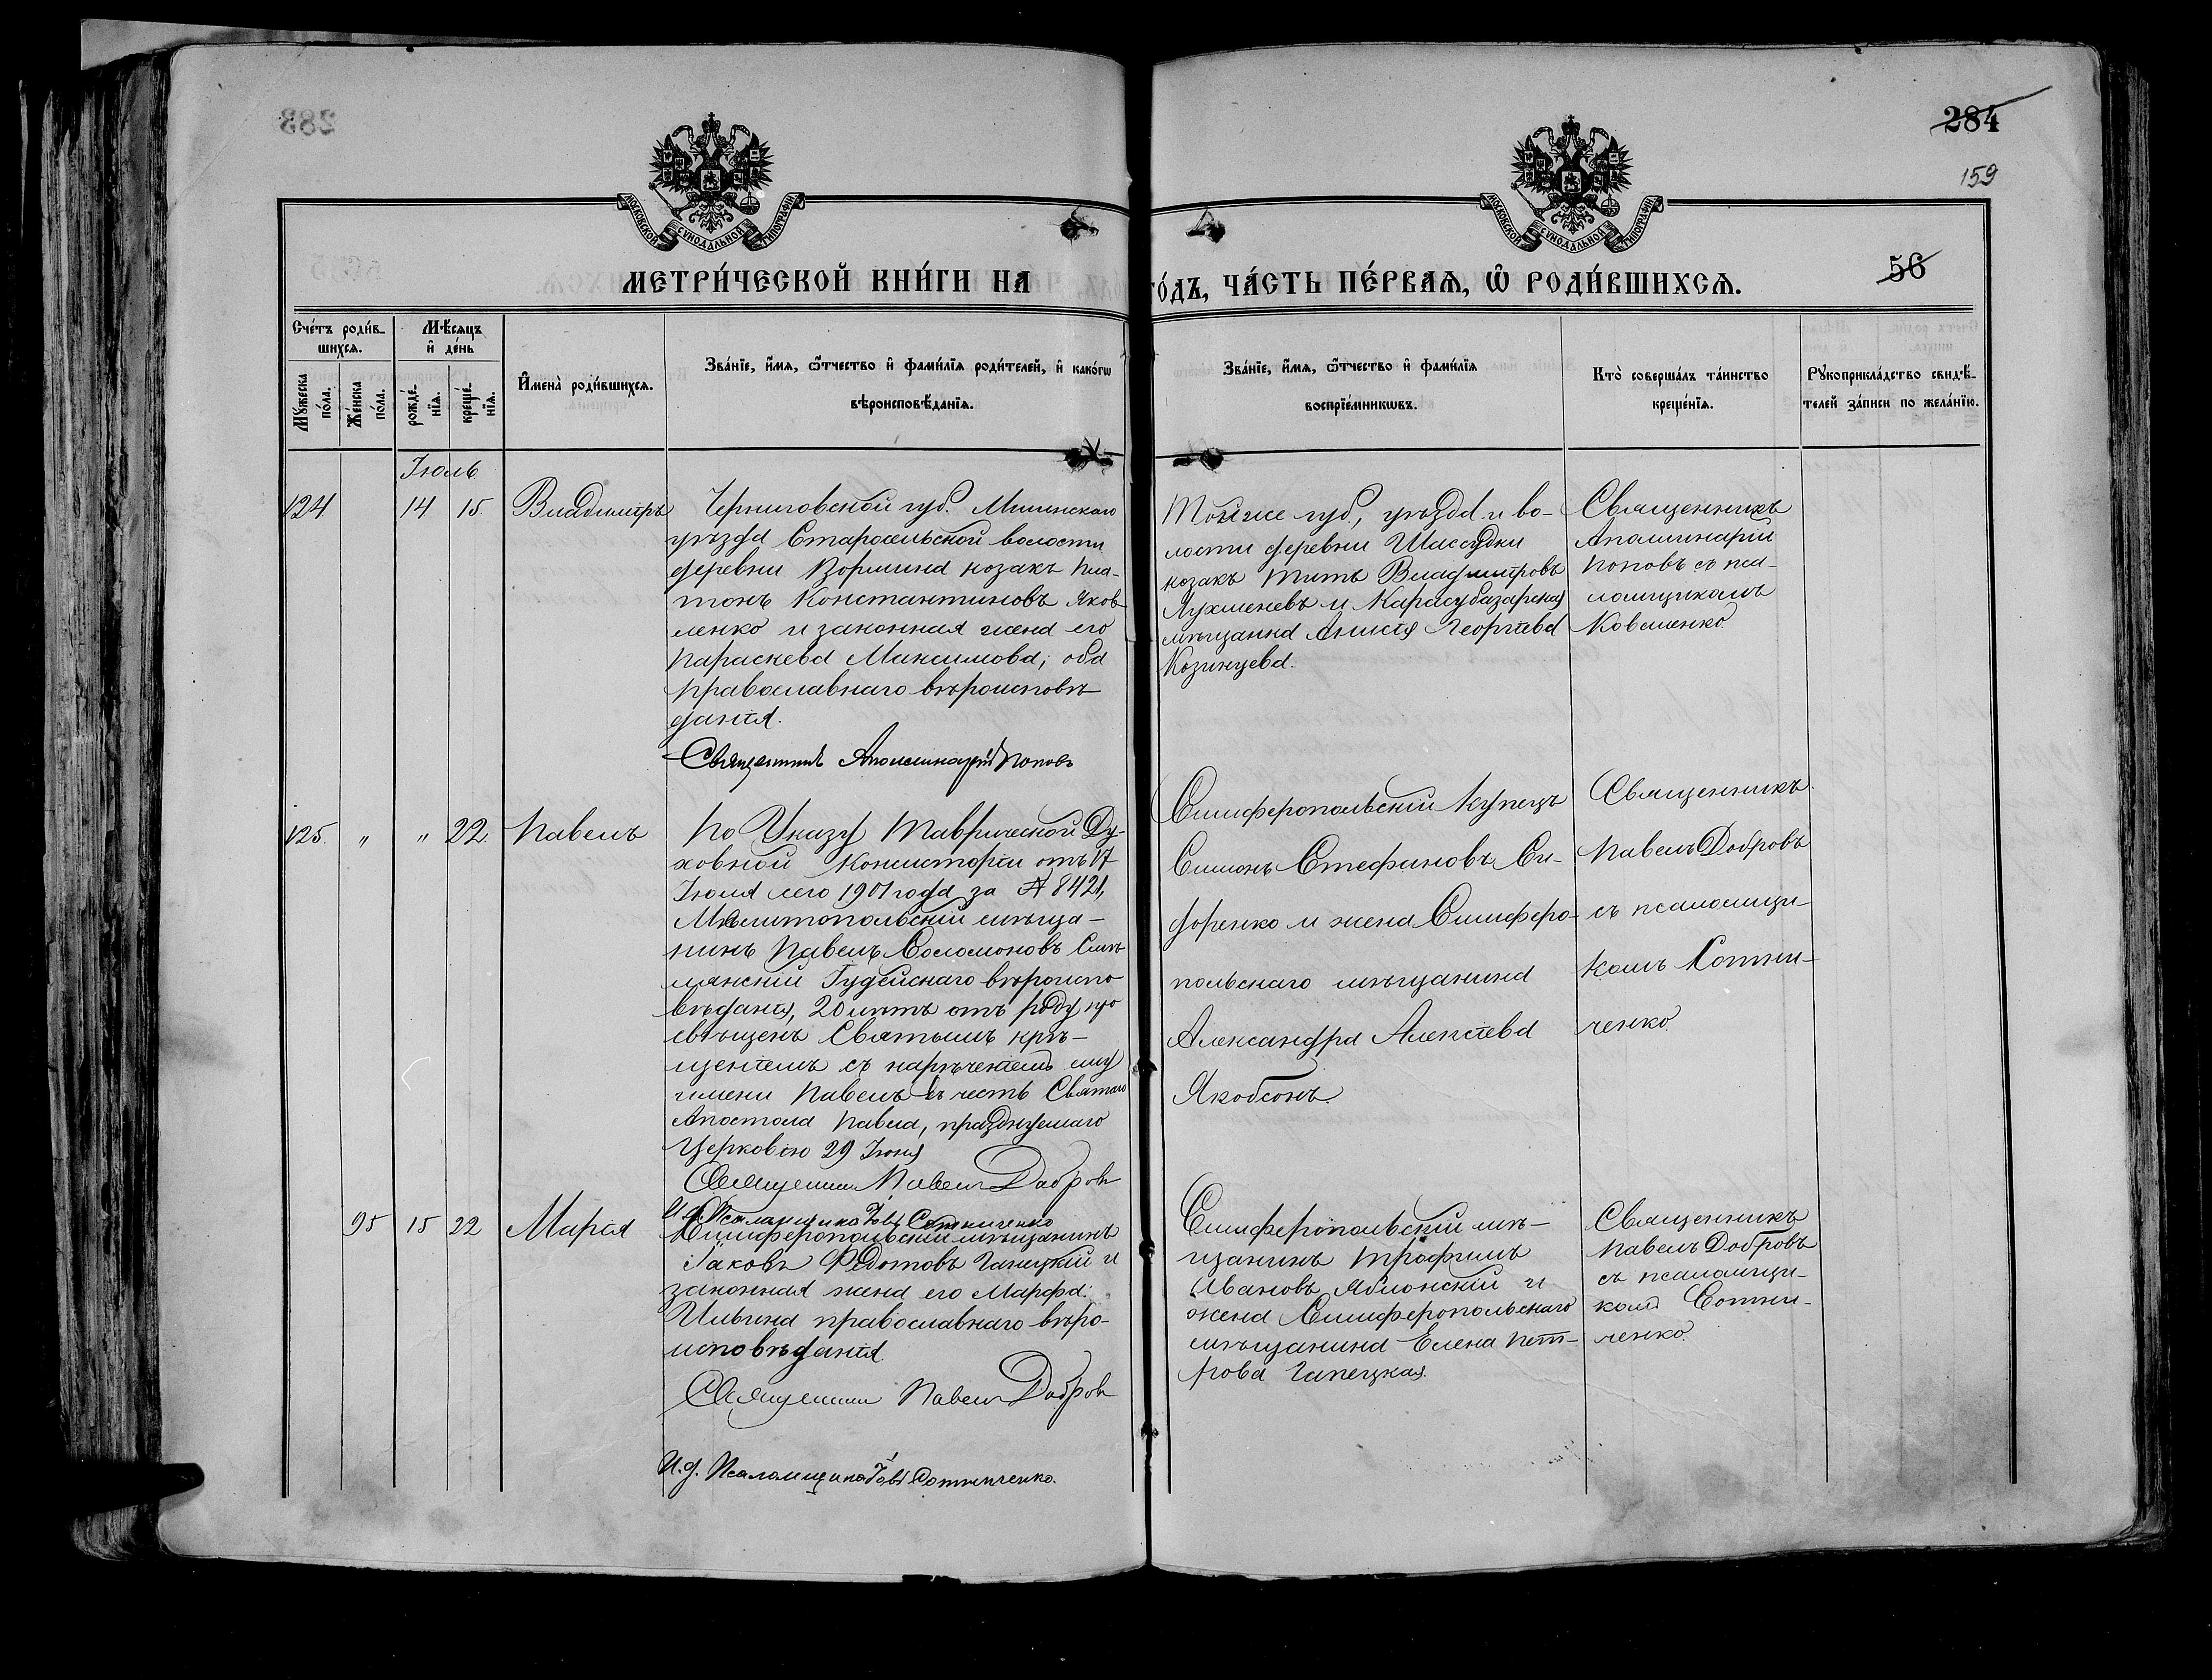 283
284
159
56
МОСКОВСКОЙ СѴНОДАЛЬНОЙ ТИПОГРАФІИ
МОСКОВСКОЙ СѴНОДАЛЬНОЙ ТИПОГРАФІИ
МЕТРИ́ЧЕСКОЙ КНИ́ГИ НА
ГО́ДЪ, ЧА́СТЬ ПЕ́РВАѦ, Ѡ҆ РОДИ́ВШИХСѦ.
Сче́тъ роди́в-
шихсѧ.
Мѣ́сѧцъ
и҆ де́нь
Мꙋ́жеска
по́ла.
Же́нска
по́ла.
рожде́-
нїѧ.
креще́-
нїѧ.
И҆мена̀ роди́вшихсѧ.
Зва́нїе, и҆́мѧ, ѻ҆́тчество и҆ фами́лїѧ роди́телей, и҆ како́гѡ
вѣроисповѣ́данїѧ.
Зва́нїе, и҆́мѧ, ѻ҆́тчество и҆ фами́лїѧ
воспрїе́мникѡвъ.
Кто̀ соверша́лъ та́инство
креще́нїѧ.
Рꙋкоприкла́дство свидѣ́-
телей за́писи по жела́нїю.
Іюль
124. 14 15. Владиміръ
Черниговской губ. Мглинскаго
уѣзда Старосельской волости
деревни Вормина козакъ Пла-
тонъ Константиновъ Яков-
ленко и законная жена его
Параскева Максимова; оба
православнаго вѣроисповѣ
данія.
Священникъ Аполлинарій Поповъ
Той же губ., уѣзда и во-
лости деревни
козакъ Титъ Владиміровъ
и Карасубазарская
мѣщанка Анисія Георгіева
Козинцева.
Священникъ
Аполлинарій
Поповъ съ пса-
ломщикомъ
Коваленко.
125. " " 22. Павелъ
По Указу Таврической Ду-
ховной Консисторіи отъ 17
Іюля сего 1901 года за № 8421,
Мелитопольскій мѣща-
нинъ Павелъ Соломоновъ
Іудейскаго вѣроиспо
вѣданія, 20 лѣтъ отъ роду про
свѣщенъ Святымъ кре-
щеніемъ съ нареченіемъ ему
имени Павелъ въ честь Святаго
Апостола Павла, празднуемаго
Церковію 29 Іюня
Священникъ Павелъ Добровъ
И. д. Псаломщика Іовъ Сотниченко
Симферопольскій купецъ
Симонъ Стефановъ Си-
доренко и жена Симферо-
польскаго мѣщанина
Александра Алексіева
Якобсонъ.
Священникъ
Павелъ Добровъ
съ псаломщи-
комъ Сотни-
ченко.
95 15 22 Марія
Симферопольскій мѣщанинъ
Іаковъ Ѳедотовъ Гапецкій и
законная жена его Марфа
Ильина православнаго вѣро-
исповѣданія.
Священникъ Павелъ Добровъ
И. д. Псаломщика Іовъ Сотниченко.
Симферопольскій мѣ-
щанинъ Трофимъ
Ивановъ Яблонскій и
жена Симферопольскаго
мѣщанина Елена Пет-
рова Гапецкая.
Священникъ
Павелъ Добровъ
съ псаломщи-
комъ Сотни-
ченко.